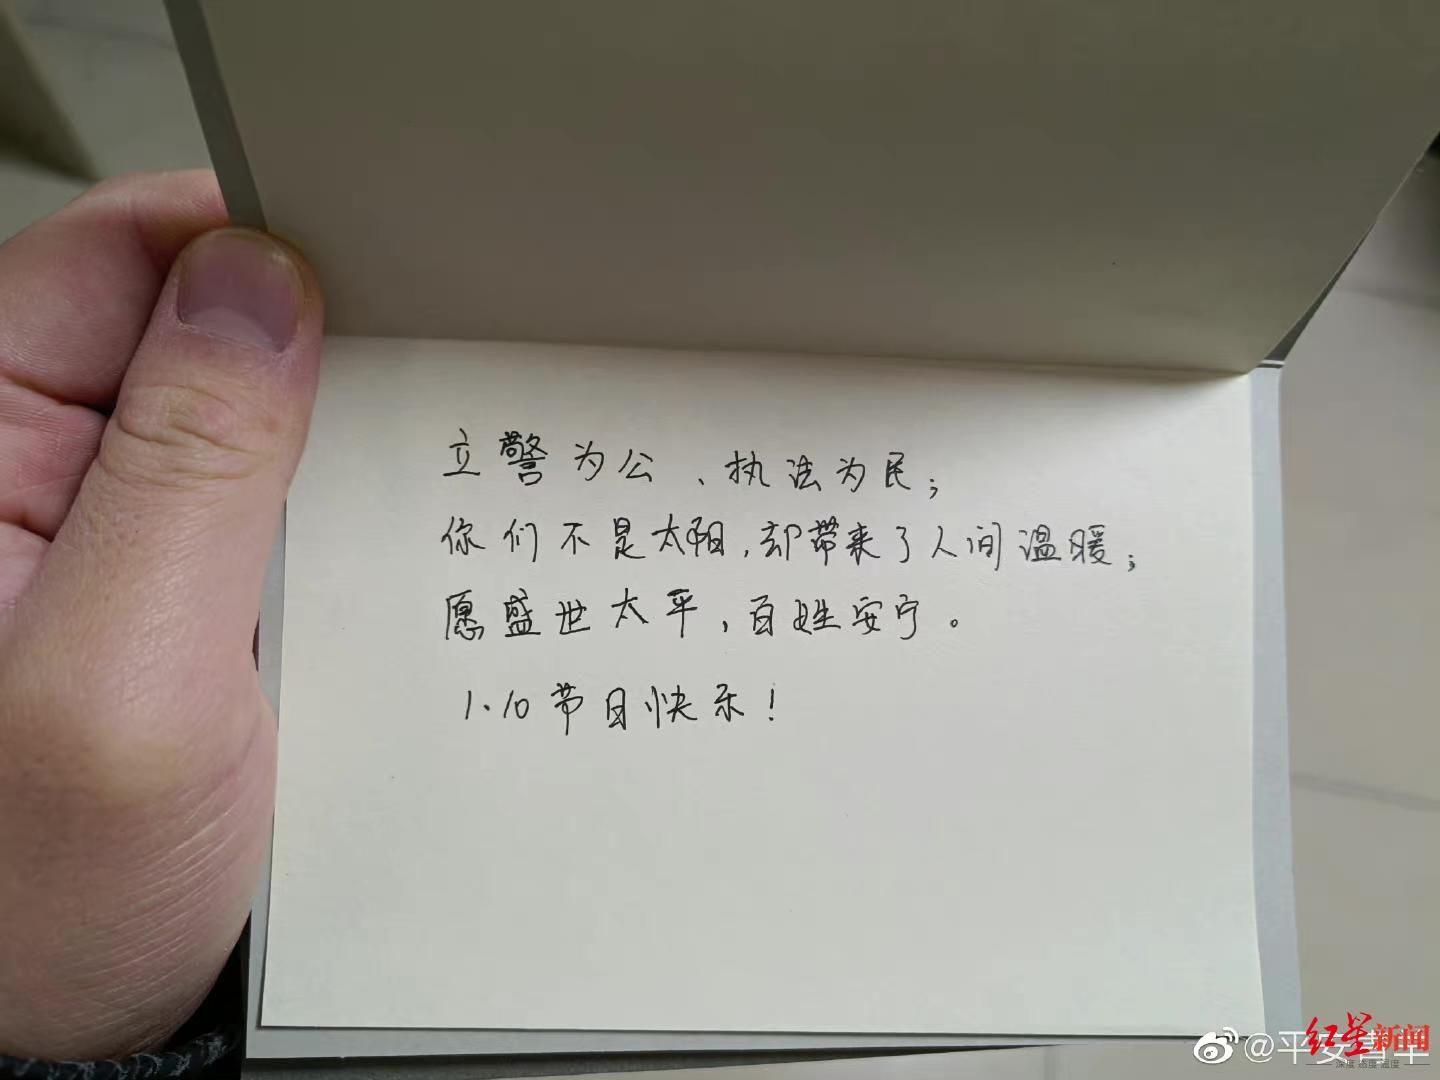 立警为公、执法为民；
你们不是太阳，却带来了人间温暖；
愿盛世太平，百姓安宁。
1.10节日快乐！
红星新闻
深度 态度 温度
@平安青羊